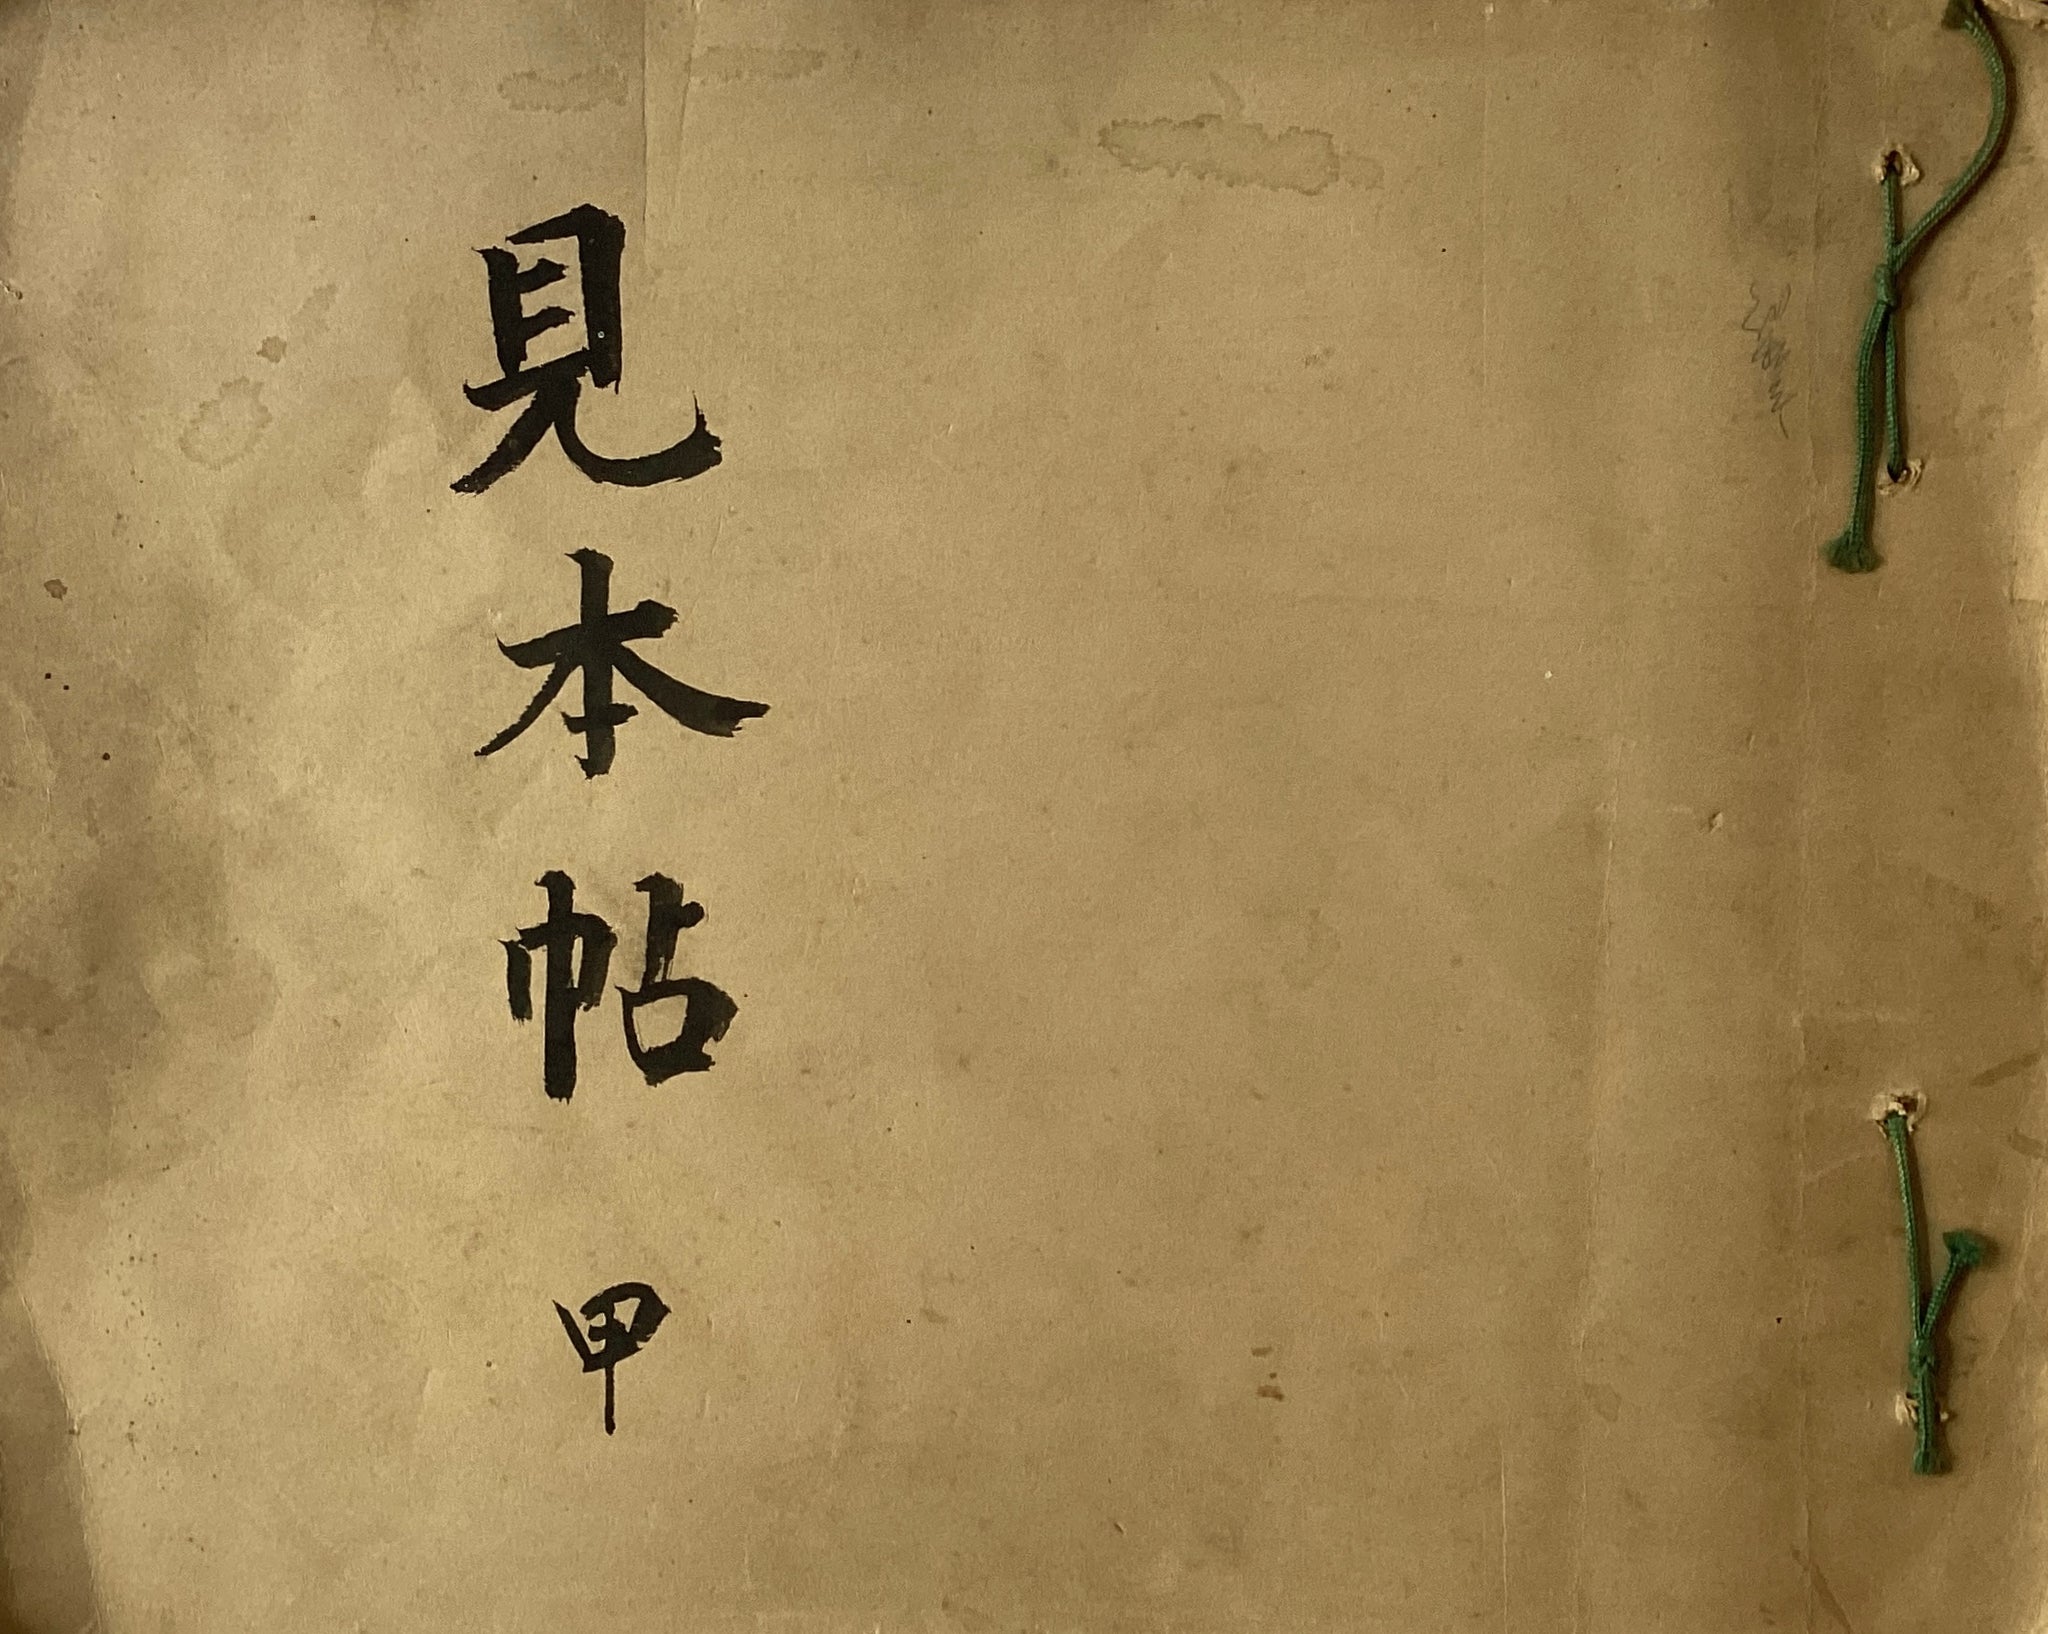 見本帖
甲